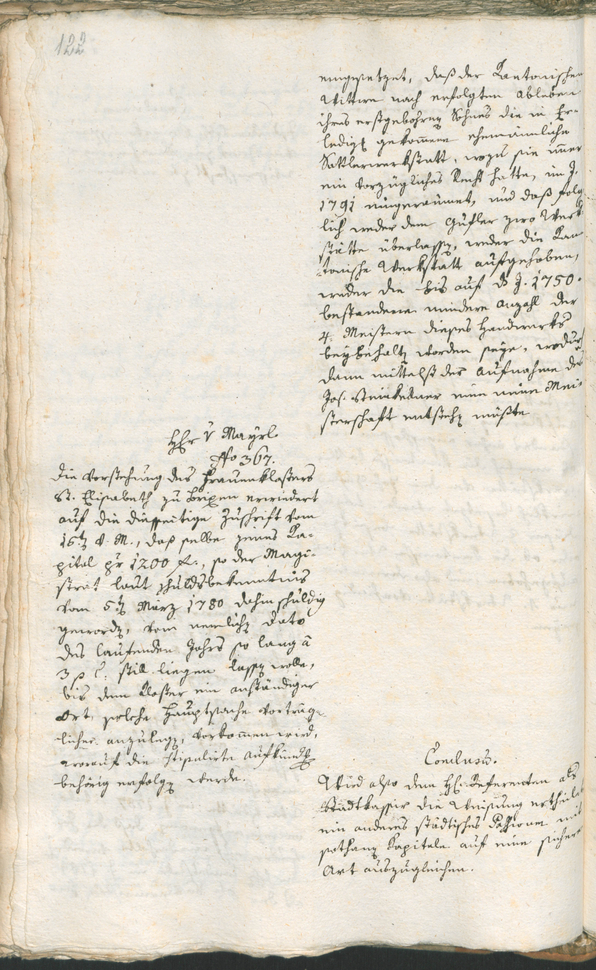 122
eingesetzet, daß der Kantonischen
Wittwe nach erfolgten Ableben
ihres erstgebohrnen Sohnes die in Er-
ledigt gekommene ehemännliche
Sattlerwerkstatt, wozu sie immer
ein vorzügliches Recht hatte, im J.
1791 eingeräumet, und daß folg-
lich weder dem Gufler zwo Werk-
stätte überlassen, weder die Kan-
tonische Werkstatt aufgehoben,
weder die bis auf das J. 1750.
bestandene mindere Anzahl der
4. Meistern dieses Handwerks
beybehalten worden seye, wodurch
dann mittelst der Aufnahme des
Jos. Steinkelner eine neue Mei-
sterschaft entstehen müßte
Hhr v Mayrl.
No 367.
Die Vorstehung des Frauenklosters
St. Elisabeth zu Brixen erwiedert
auf die diesseitige Zuschrift vom
16ten d. M., daß selbe jenes Ka-
pital pr 1200 fl., so der Magi-
strat laut Schuldbekenntnis
vom 5ten März 1780 dahin schuldig
geworden, vom nemlichen Dato
des laufenden Jahrs so lang à
3 p C. still liegen lassen wolle,
bis dem Kloster ein anständiger
Ort, solche Hauptsache vorträg-
licher anzulegen, vorkommen wird,
worauf die stipulirte Aufkündung
behörig erfolgen werde.
Conclusum.
Wird also dem Hh. Referenten als
Stadtkassir die Weisung ertheilet
ein anderes städtisches Passivum mit
sothanen Kapitale auf eine sichere
Art auszugleichen.